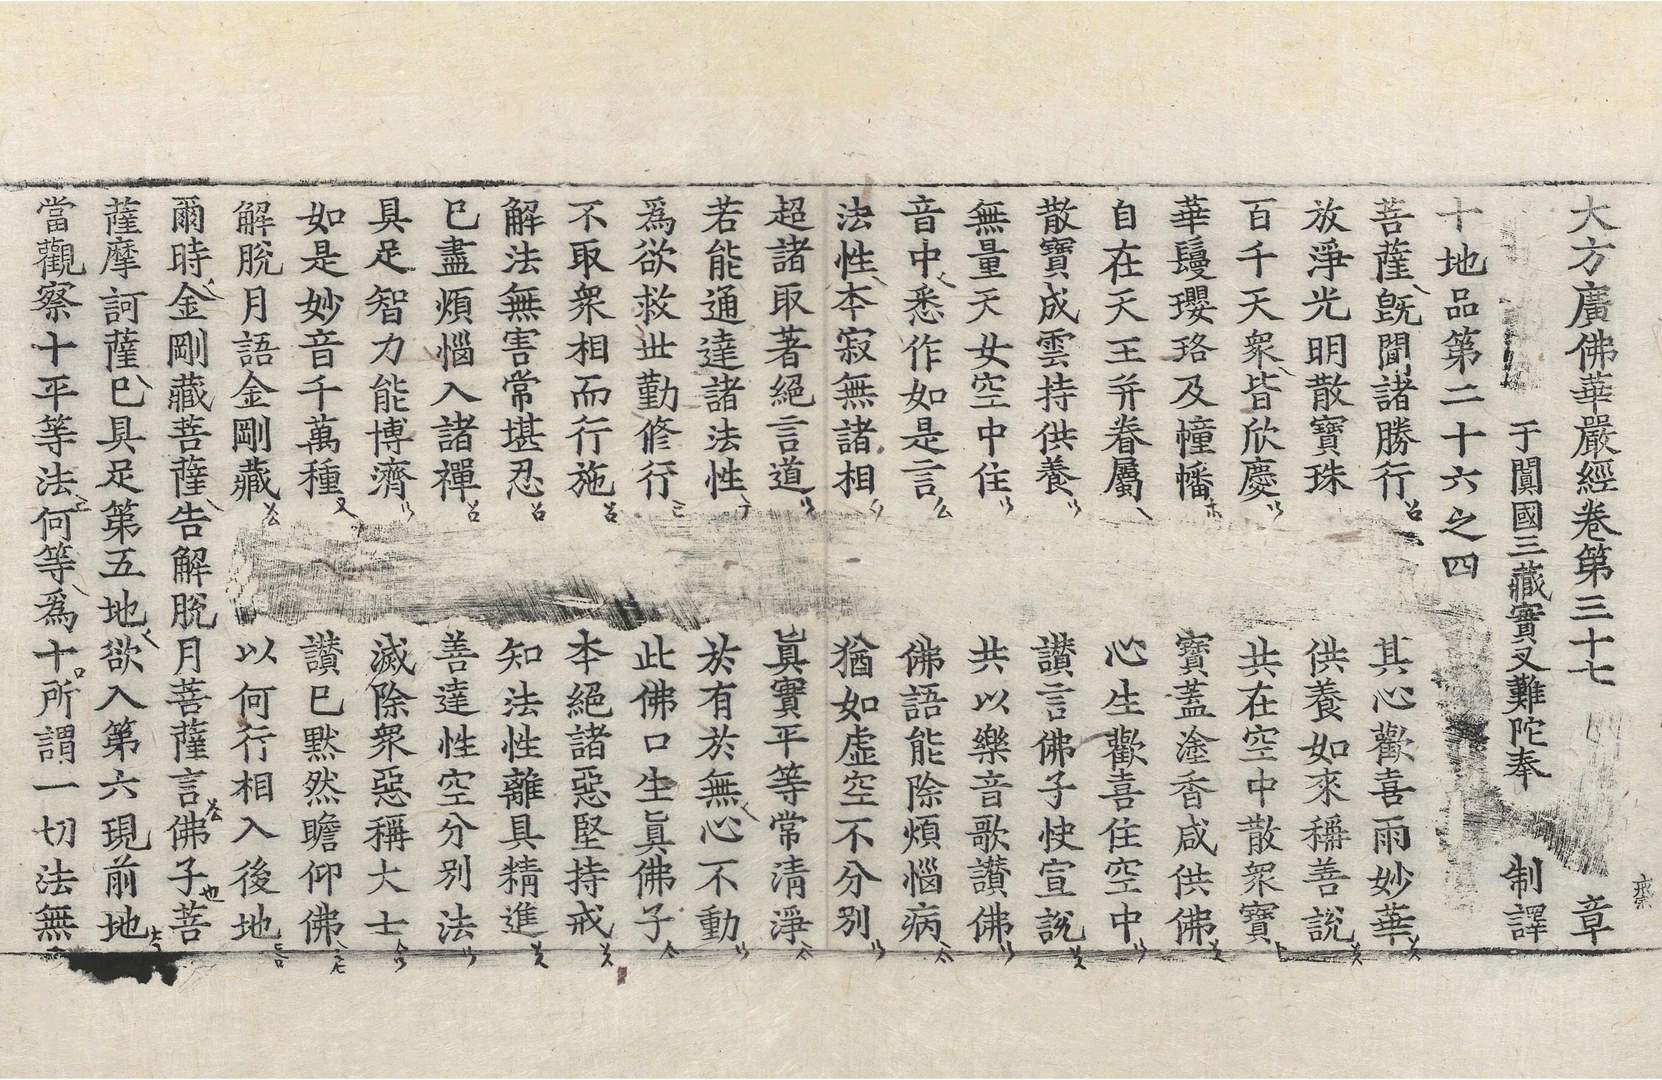 大方廣佛華嚴經卷第三十七 章
于闐國三藏實叉難陀奉 制譯
十地品第二十六之四
菩薩旣聞諸勝行 其心歡喜雨妙華
放淨光明散寶珠 供養如來稱善說
百千天衆皆欣慶 共在空中散衆寶
華鬘瓔珞及幢幡 寶蓋塗香咸供佛
自在天王并眷屬 心生歡喜住空中
散寶成雲持供養 讚言佛子快宣說
無量天女空中住 共以樂音歌讚佛
音中悉作如是言 佛語能除煩惱病
法性本寂無諸相 猶如虛空不分別
超諸取著絕言道 眞實平等常淸淨
若能通達諸法性 於有於無心不動
爲欲救世勤修行 此佛口生眞佛子
不取衆相而行施 本絕諸惡堅持戒
解法無害常堪忍 知法性離具精進
已盡煩惱入諸禪 善達性空分別法
具足智力能博濟 滅除衆惡稱大士
如是妙音千萬種 讚已黙然瞻仰佛
解脫月語金剛藏 以何行相入後地
爾時金剛藏菩薩告解脫月菩薩言佛子菩
薩摩訶薩已具足第五地欲入第六現前地
當觀察十平等法何等爲十所謂一切法無